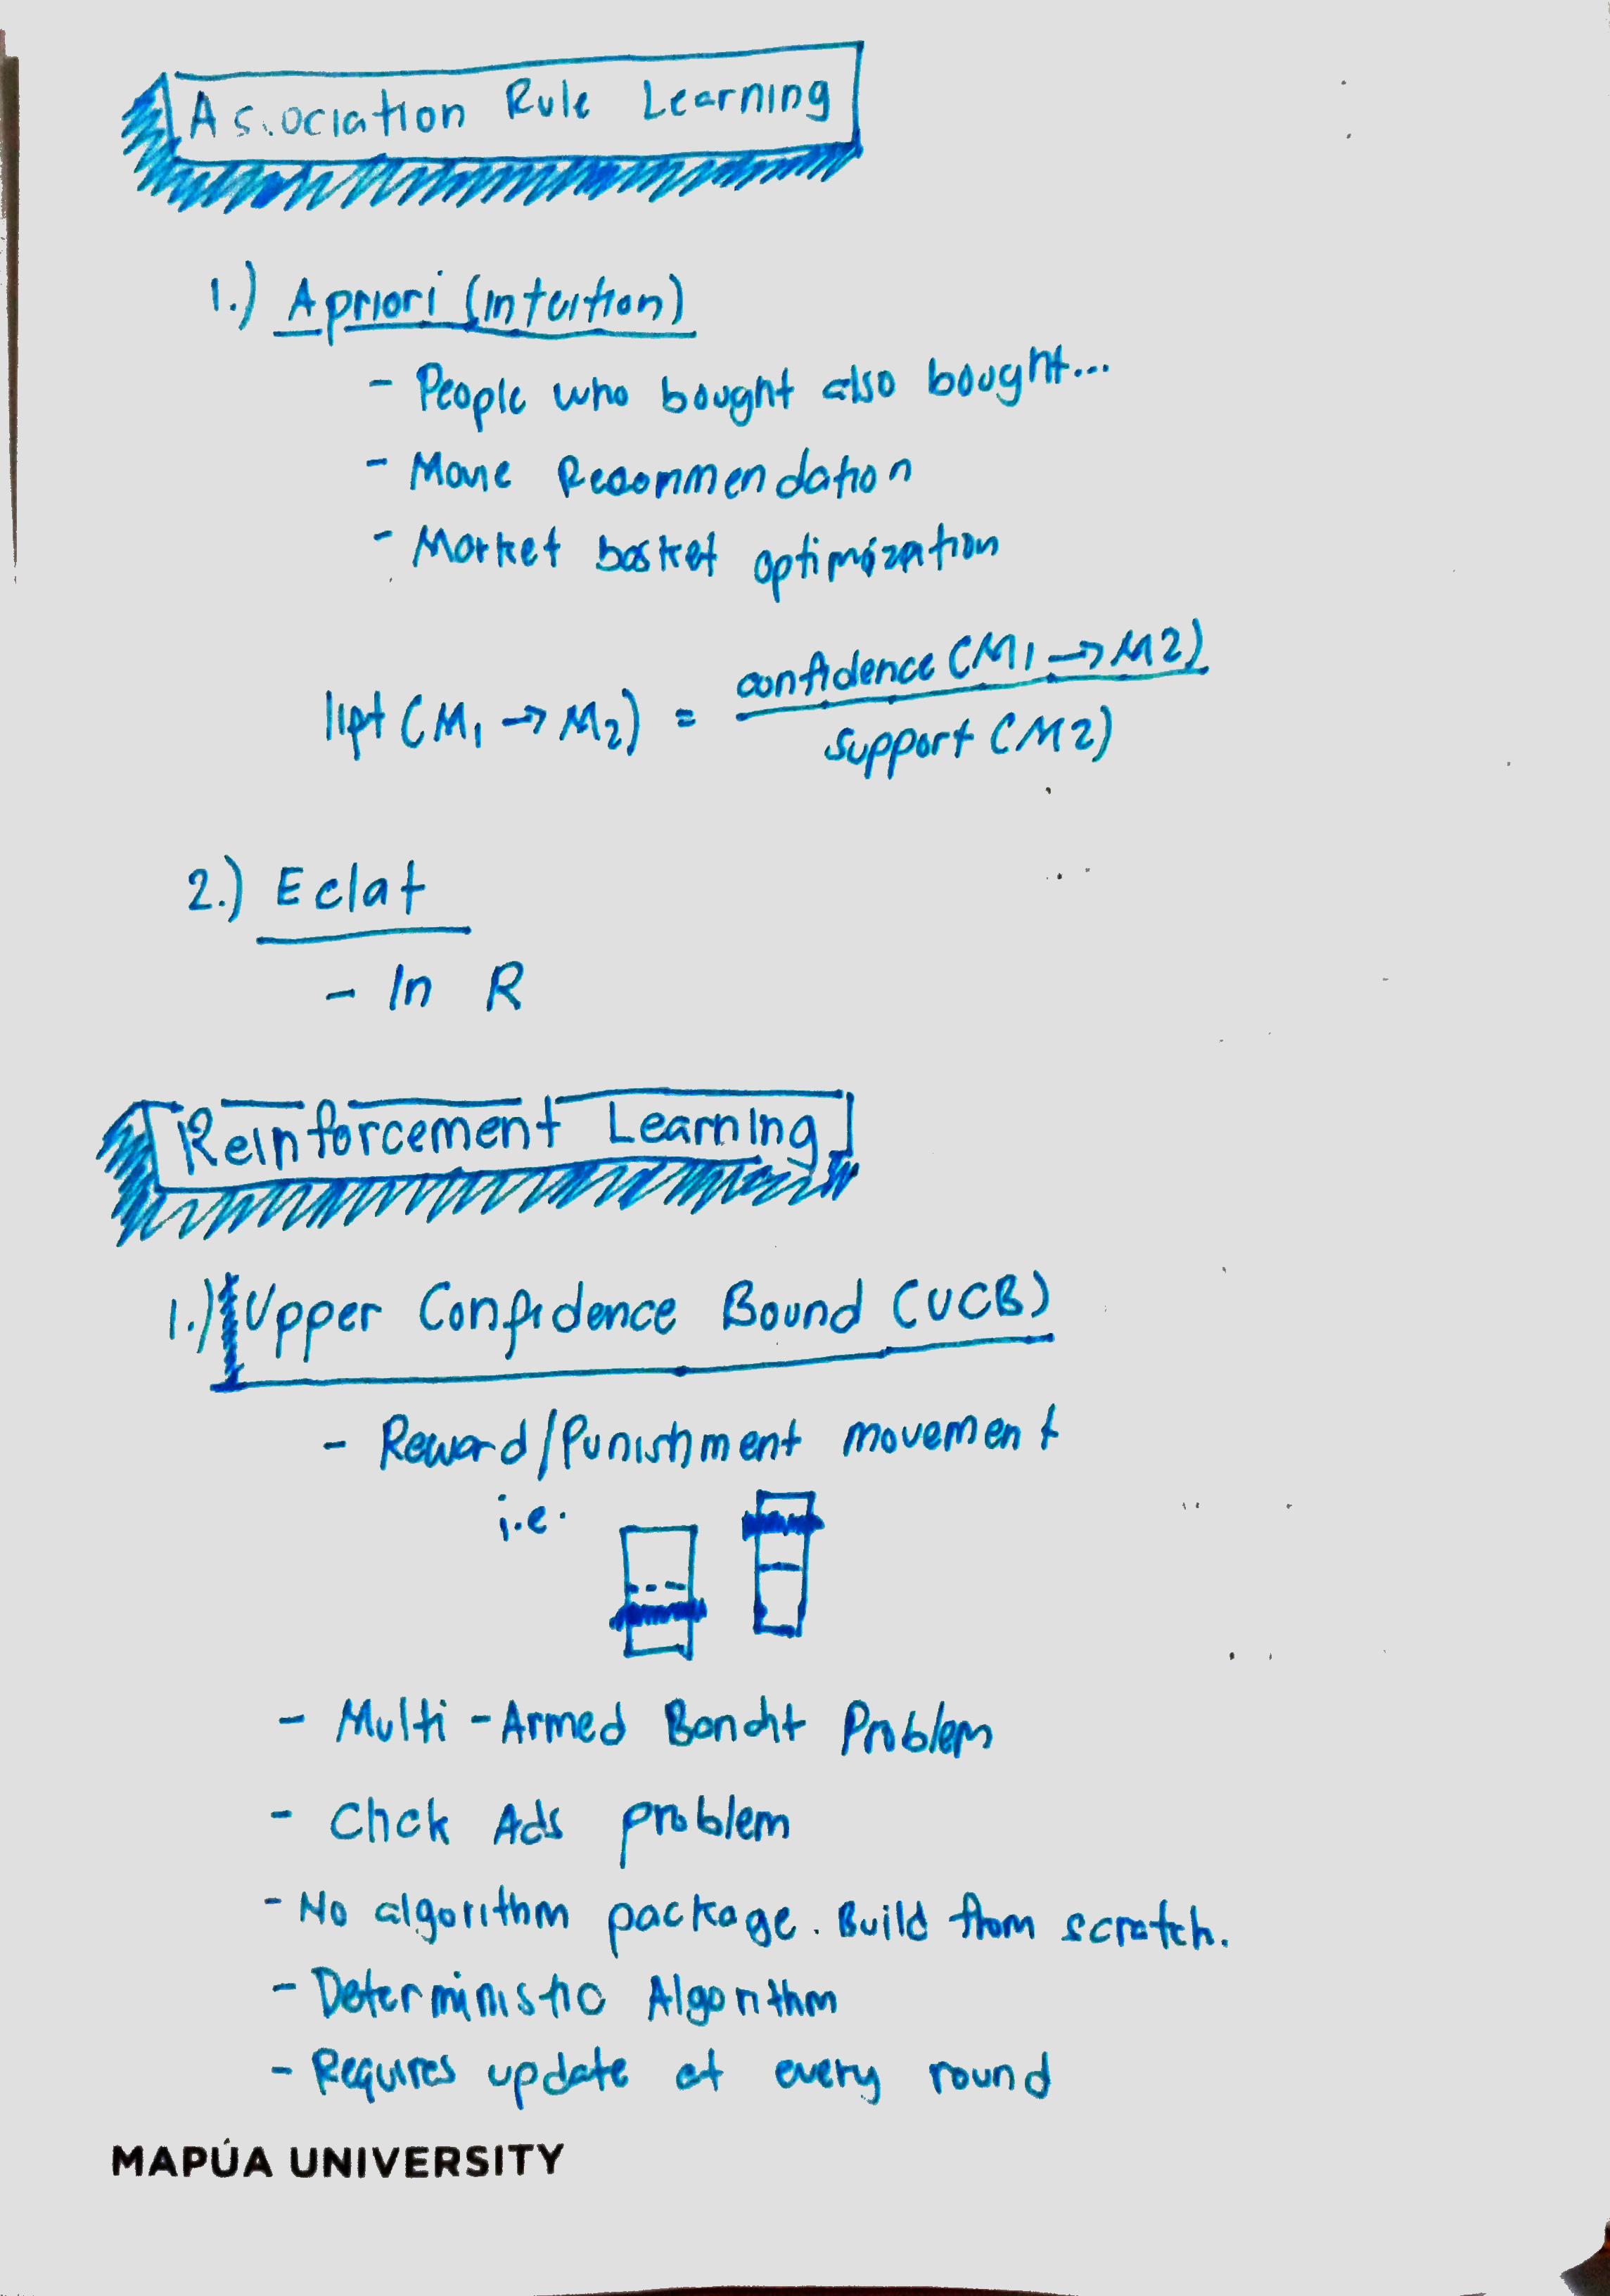 Association Rule Learning
1.) Apriori (Intuition)
- People who bought also bought...
- Movie Recommendation
- Market basket optimization
lift (M1 → M2) = confidence (M1 → M2)
support (M2)
2.) Eclat
- In R
Reinforcement Learning
1.) Upper Confidence Bound (UCB)
- Reward/Punishment movement
i.e.
- Multi-Armed Bandit Problem
- Click Ads problem
- No algorithm package. Build from scratch.
- Deterministic Algorithm
- Requires update at every round
MAPÚA UNIVERSITY